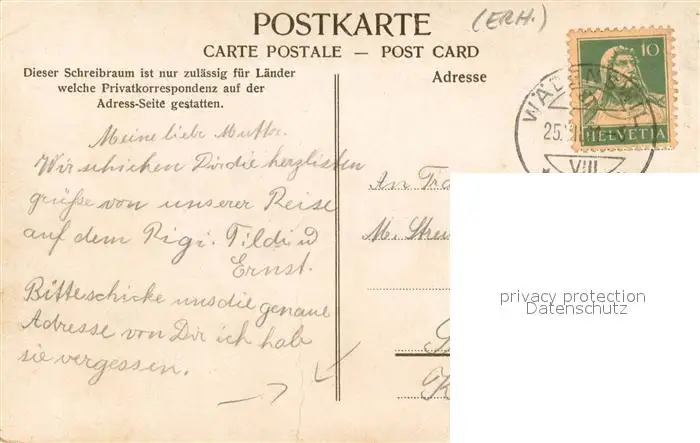 POSTKARTE
(ERH.)
CARTE POSTALE — POST CARD
Dieser Schreibraum ist nur zulässig für Länder
welche Privatkorrespondenz auf der
Adress-Seite gestatten.
Adresse
10
HELVETIA
25.
VIII
Meine liebe Mutter.
Wir schicken Dir die herzlisten
grüße von unserer Reise
auf dem Rigi. Tildi u
Ernst.
Bitte schicke uns die genaue
Adresse von Dir ich hab
sie vergessen.
An
M.
privacy protection
Datenschutz